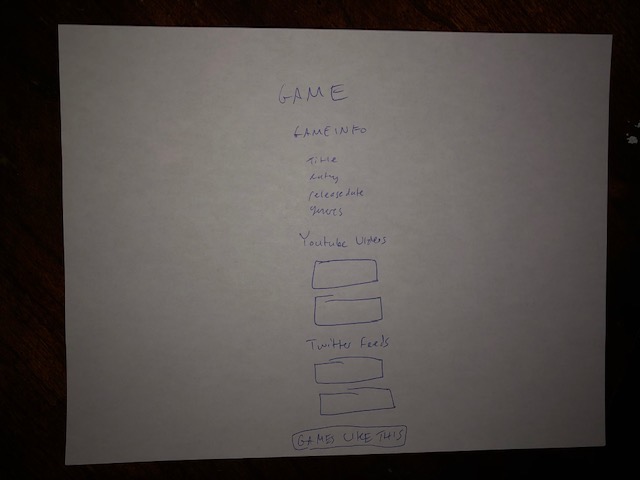 GAME
GAME INFO
Title
rating
release date
genres
Youtube Videos
Twitter Feeds
GAMES LIKE THIS